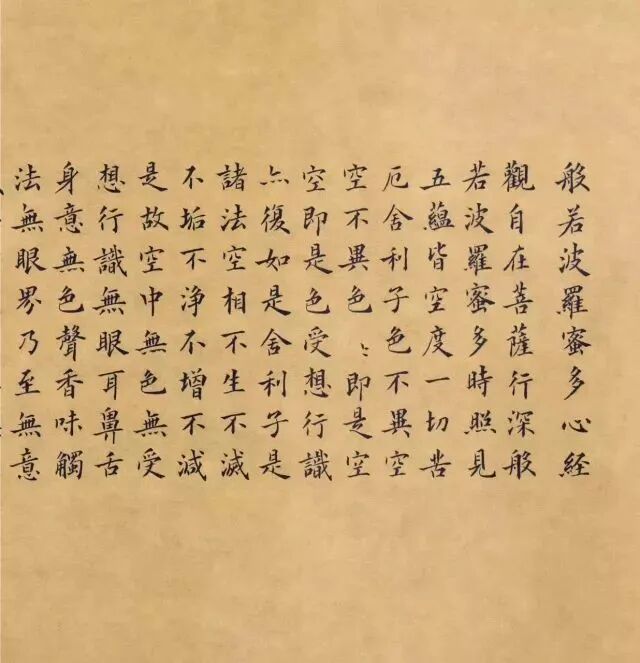 般若波羅蜜多心経
觀自在菩薩行深般
若波羅蜜多時照見
五蘊皆空度一切苦
厄舍利子色不異空
空不異色〻即是空
空即是色受想行識
亦復如是舍利子是
諸法空相不生不滅
不垢不浄不增不減
是故空中無色無受
想行識無眼耳鼻舌
身意無色聲香味觸
法無眼界乃至無意